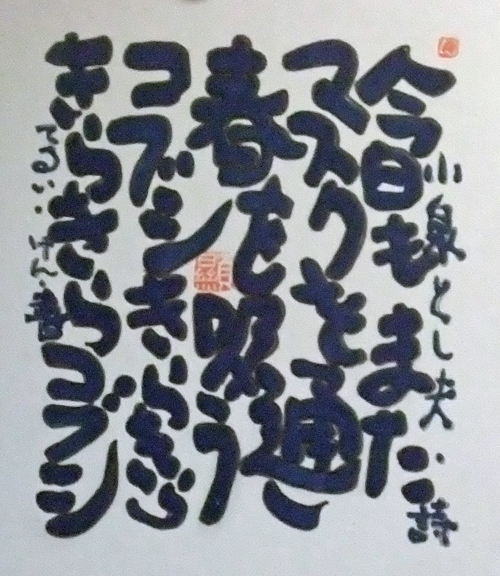 小泉とし夫・詩
今日もまた
マスクを通し
春を吸う
コブシきらきら
きらきらコブシ
てるい・けん・書